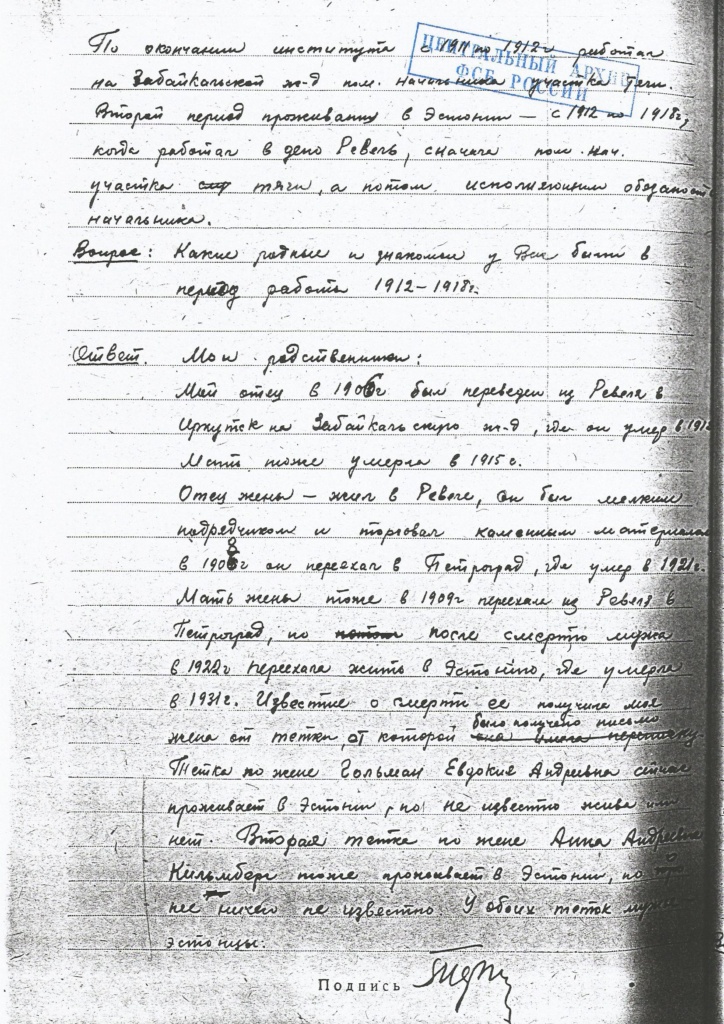 По окончании института с 1911 по 1912г работал
ЦЕНТРАЛЬНЫЙ АРХИВ
ФСБ РОССИИ
на Забайкальской ж-д пом. начальника участка тяги.
Второй период проживания в Эстонии — с 1912 по 1918г,
когда работал в депо Ревель, сначала пом. нач.
участка тяги, а потом исполняющим обязаност
начальника.
Вопрос: Какие родные и знакомые у Вас были в
период работы 1912–1918г.
Ответ. Мои родственники:
Мой отец в 1906г был переведен из Ревеля в
Иркутск на Забайкальскую ж-д, где он умер в
Мать тоже умерла в 1915 г.
Отец жены — жил в Ревеле, он был мелким
подрядчиком и торговал каменным материалом
в 1908г он переехал в Петроград, где умер в 1921г.
Мать жены тоже в 1909г переехала из Ревеля в
Петроград, но после смерти мужа
в 1922г переехала жить в Эстонию, где умерла
в 1931г. Известие о смерти ее получила моя
было получено письмо
жена от тетки, от которой она имела переписку.
Тетка по жене Гольман Евдокия Андреевна сейчас
проживает в Эстонии, но не известно жива или
нет. Вторая тетка по жене Анна Андреевна
Кильмберг тоже проживает в Эстонии, но про
нее ничего не известно. У обоих теток мужья
эстонцы.
Подпись